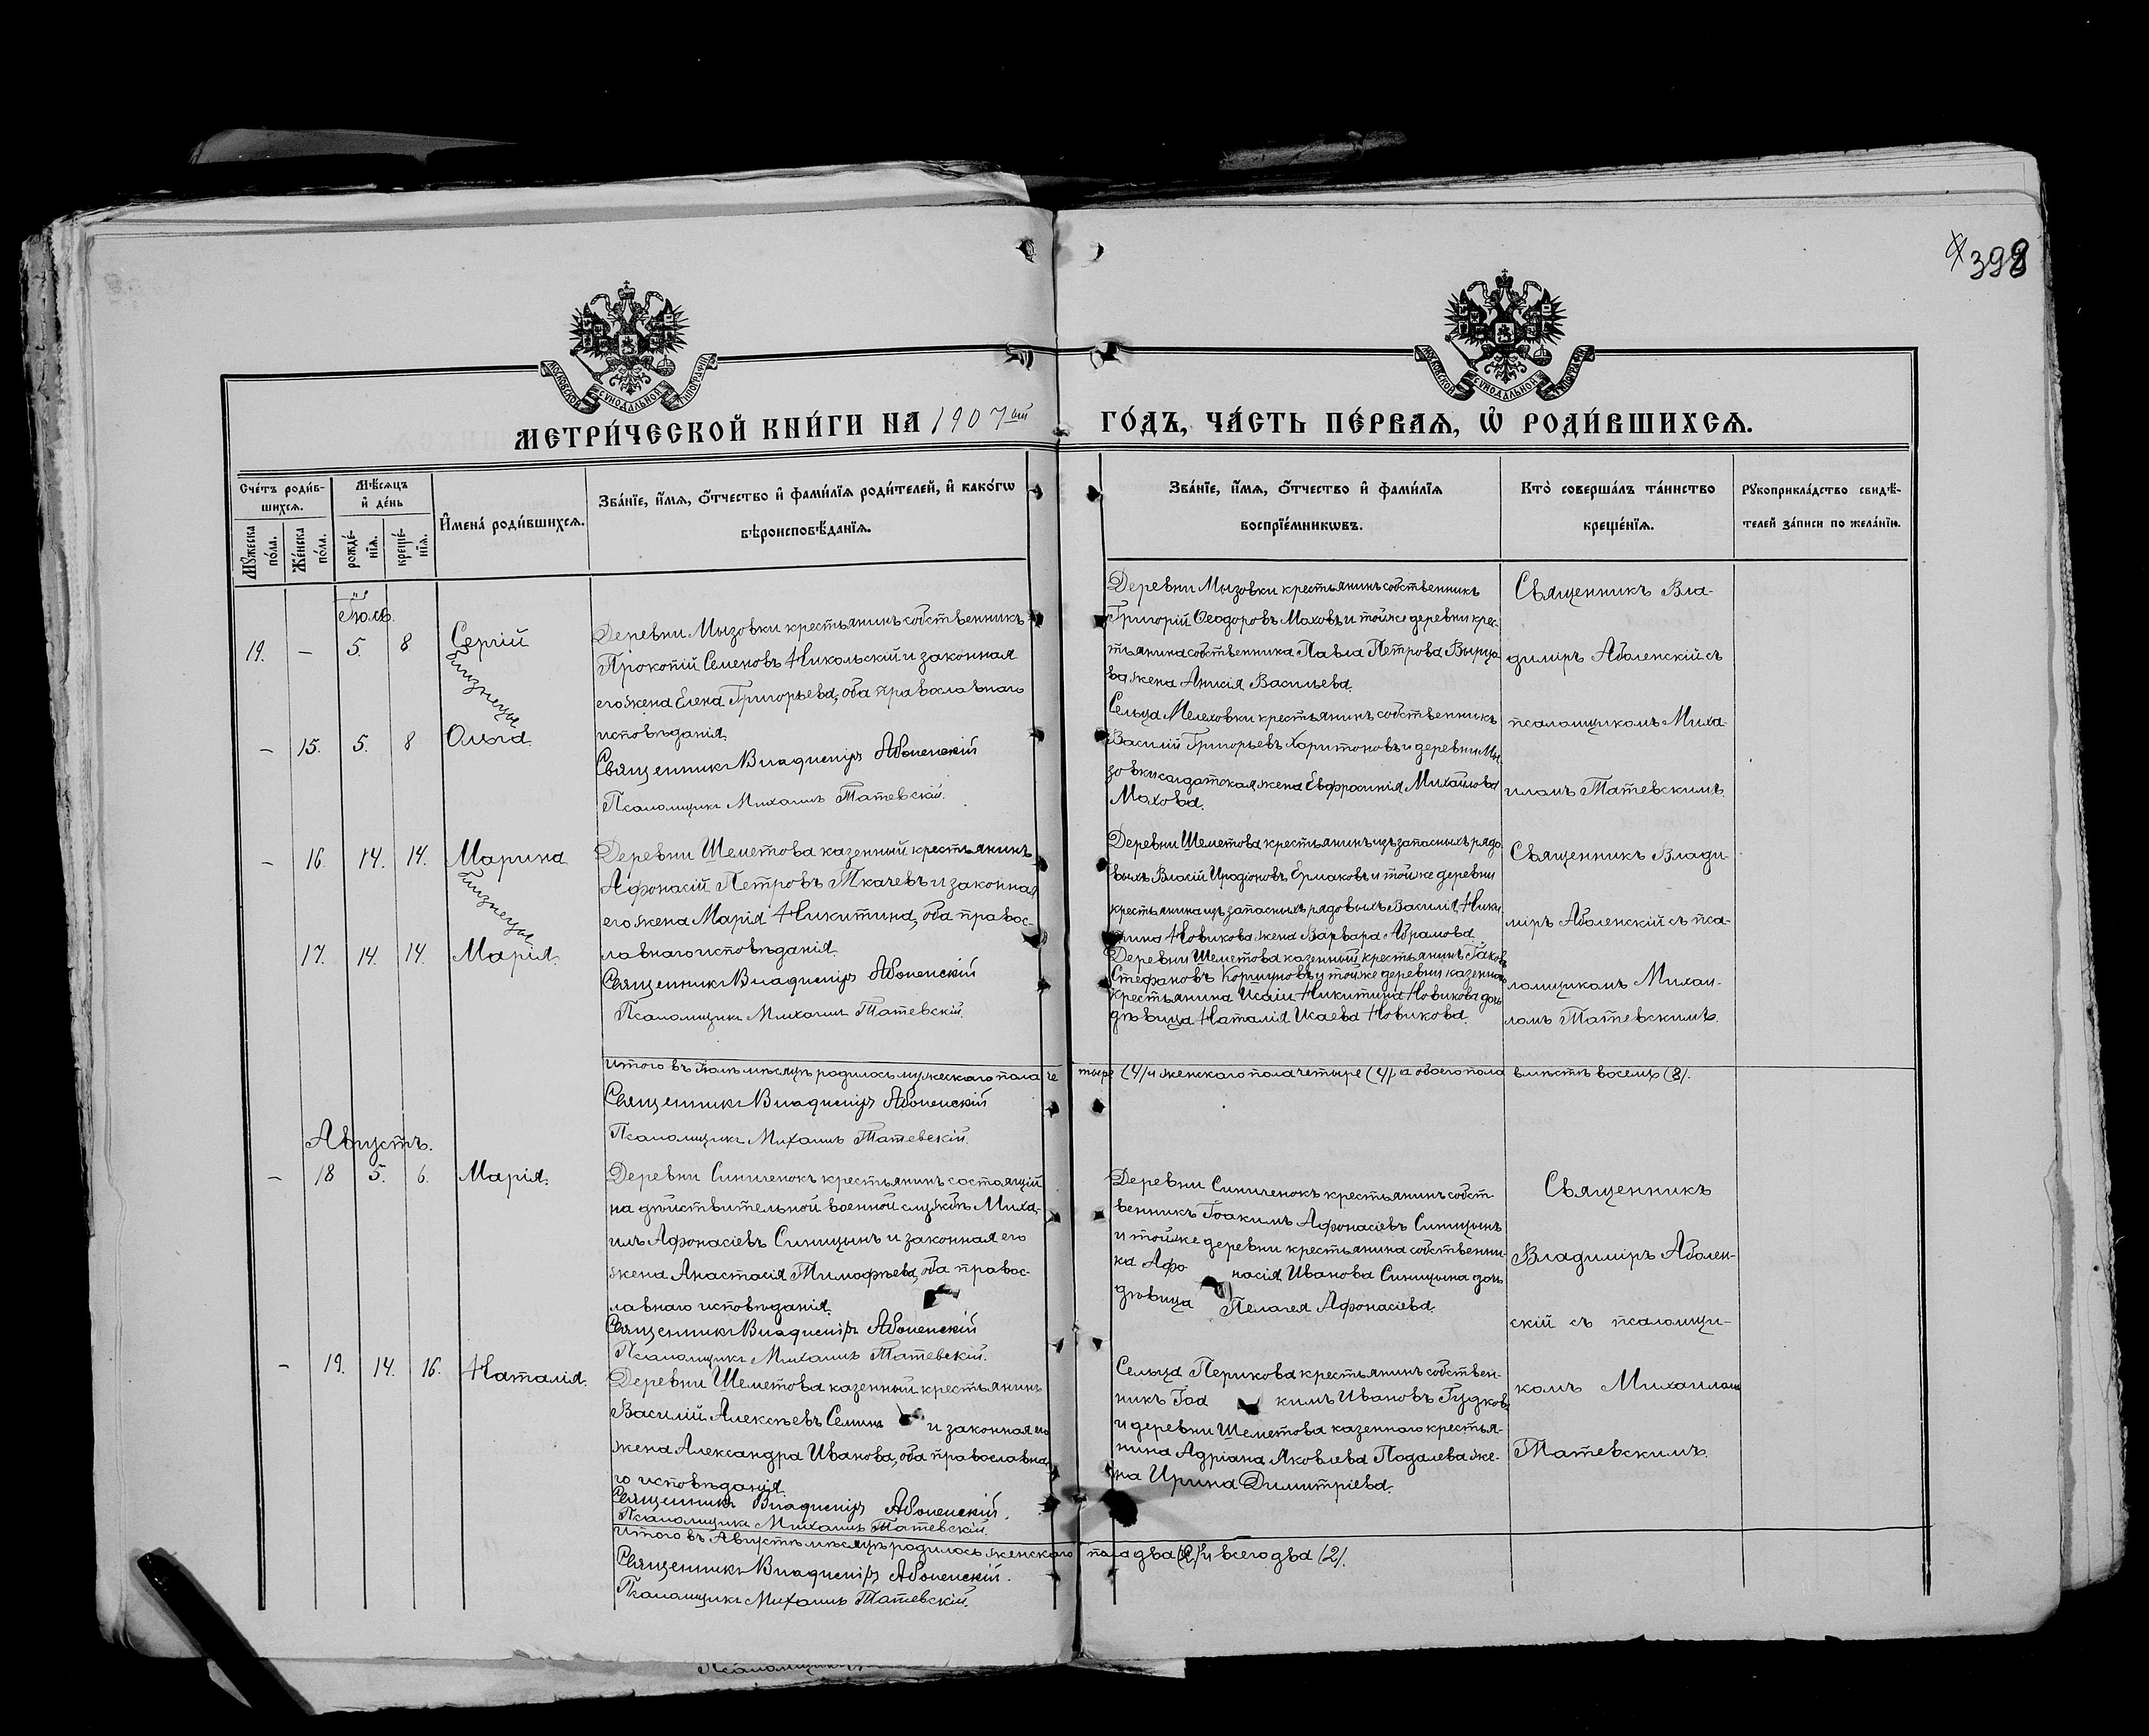 398
МОСКОВСКОЙ СѴНОДАЛЬНОЙ ТИПОГРАФІИ
МОСКОВСКОЙ СѴНОДАЛЬНОЙ ТИПОГРАФІИ
МЕТРИ́ЧЕСКОЙ КНИ́ГИ НА 1907ый ГО́ДЪ, ЧА́СТЬ ПЕ́РВАѦ, Ѡ҆ РОДИ́ВШИХСѦ.
Сче́тъ роди́в-
шихсѧ.
Мꙋ́жеска
по́ла.
Же́нска
по́ла.
Мѣ́сѧцъ
и҆ де́нь
рожде́-
нїѧ.
креще́-
нїѧ.
И҆мена̀ роди́вшихсѧ.
Зва́нїе, и҆́мѧ, ѻ҆́тчество и҆ фами́лїѧ роди́телей, и҆ како́гѡ
вѣроисповѣ́данїѧ.
Зва́нїе, и҆́мѧ, ѻ҆́тчество и҆ фами́лїѧ
воспрїе́мникѡвъ.
Кто̀ соверша́лъ та́инство
креще́нїѧ.
Рꙋкоприкла́дство свидѣ́-
телей за́писи по жела́нїю.
Іюль.
19. – 5. 8 Сергій
близнецы
– 15. 5. 8 Ольга.
Деревни Мызовки крестьянинъ собственникъ
Прокопій Семеновъ Никольскій и законная
его жена Елена Григорьева, оба православнаго
исповѣданія.
Священникъ Владиміръ Аболенскій
Псаломщикъ Михаилъ Татевскій.
Деревни Мызовки крестьянинъ собственникъ
Григорій Ѳеодоровъ Маховъ и той же деревни крес-
тьянина собственника Павла Петрова
жена Анисія Васильева.
Сельца Мелеховки крестьянинъ собственникъ
Василій Григорьевъ Харитоновъ и деревни Мы-
зовки солдатская жена Евфросинія Михайлова
Махова.
Священникъ Вла-
диміръ Аболенскій съ
псаломщикомъ Миха-
иломъ Татевскимъ.
– 16. 14. 14. Марина
близнецы
17. 14. 14. Марія.
Деревни Шеметова казенный крестьянинъ
Афонасій Петровъ Ткачевъ и законная
его жена Марія Никитина, оба правос-
лавнаго исповѣданія.
Священникъ Владиміръ Аболенскій
Псаломщикъ Михаилъ Татевскій.
Деревни Шеметова крестьянинъ изъ запасныхъ рядо-
выхъ Власій Иродіоновъ Ермаковъ и той же деревни
крестьянина изъ запасныхъ рядовыхъ Василія Ники-
тина Новикова жена Варвара Абрамова.
Деревни Шеметова казенный крестьянинъ Іаковъ
Стефановъ Коршуновъ и той же деревни казеннаго
крестьянина Исаіи Никитина Новикова дочь
дѣвица Наталія Исаева Новикова.
Священникъ Влади-
міръ Аболенскій съ пса-
ломщикомъ Михаи-
ломъ Татевскимъ.
Итого въ Іюлѣ мѣсяцѣ родилось мужескаго пола че тыре (4) и женскаго пола четыре (4), а обоего пола вмѣстѣ восемь (8).
Священникъ Владиміръ Аболенскій
Псаломщикъ Михаилъ Татевскій.
Августъ.
– 18 5. 6. Марія.
Деревни Синиченокъ крестьянинъ состоящій
на дѣйствительной военной службѣ Миха-
илъ Афонасіевъ Синицынъ и законная его
жена Анастасія Тимофѣева, оба правос-
лавнаго исповѣданія.
Священникъ Владиміръ Аболенскій
Псаломщикъ Михаилъ Татевскій.
Деревни Синиченокъ крестьянинъ собст-
венникъ Іоакимъ Афонасіевъ Синицынъ
и той же деревни крестьянина собственни-
ка Афо насія Иванова Синицына дочь
дѣвица Пелагея Афонасіева.
Священникъ
Владиміръ Аболен-
скій съ псаломщи-
комъ Михаиломъ
Татевскимъ.
– 19. 14. 16. Наталія.
Деревни Шеметова казенный крестьянинъ
Василій Алексѣевъ Семинъ и законная его
жена Александра Иванова, оба православна-
го исповѣданія.
Священникъ Владиміръ Аболенскій.
Псаломщикъ Михаилъ Татевскій.
Сельца Перикова крестьянинъ собствен-
никъ Іоа кимъ Ивановъ Гудковъ
и деревни Шеметова казеннаго крестья-
нина Адріана Яковлева Подалева же-
на Ирина Димитріева.
Итого въ Августѣ мѣсяцѣ родилось женскаго пола два (2) и всего два (2).
Священникъ Владиміръ Аболенскій.
Псаломщикъ Михаилъ Татевскій.